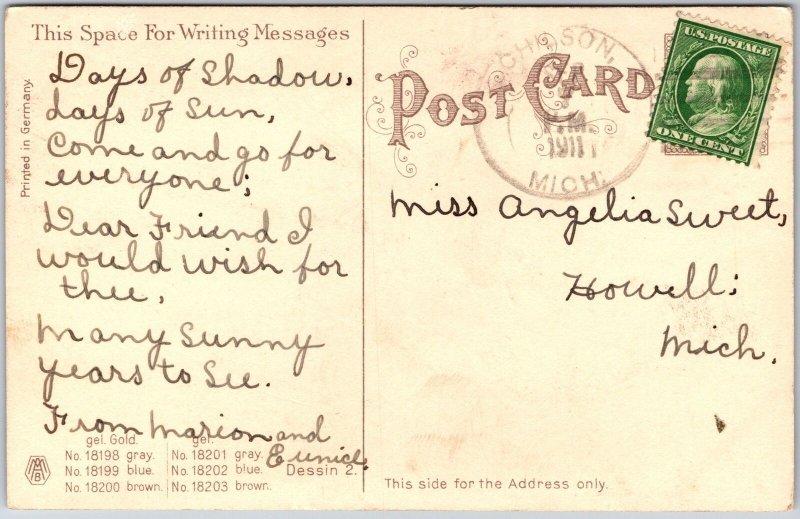 This Space For Writing Messages
Days of Shadow,
days of Sun,
Come and go for
everyone;
Dear Friend I
would wish for
thee,
Many Sunny
years to See.
From Marion and
Eunice.
Printed in Germany.
gel. Gold. gel.
No. 18198 gray. No. 18201 gray.
No. 18199 blue. No. 18202 blue. Dessin 2.
No. 18200 brown. No. 18203 brown.
POST CARD
SON,
1911
MICH.
U.S. POSTAGE
ONE CENT
Miss Angelia Sweet,
Howell;
Mich.
This side for the Address only.